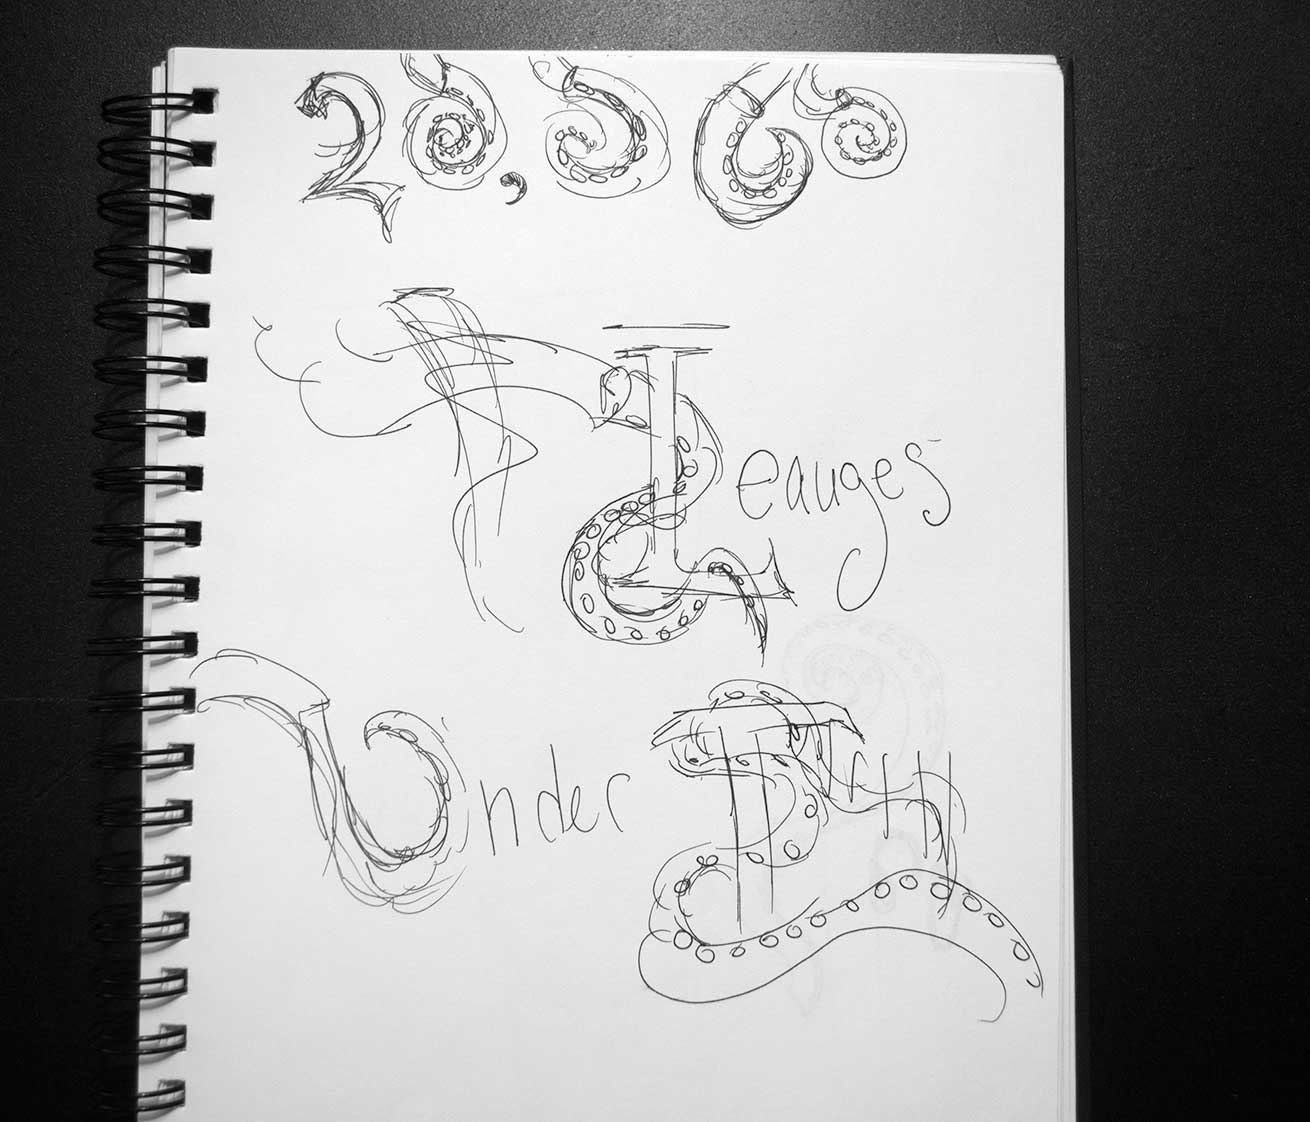 20,000
Leauges
Under